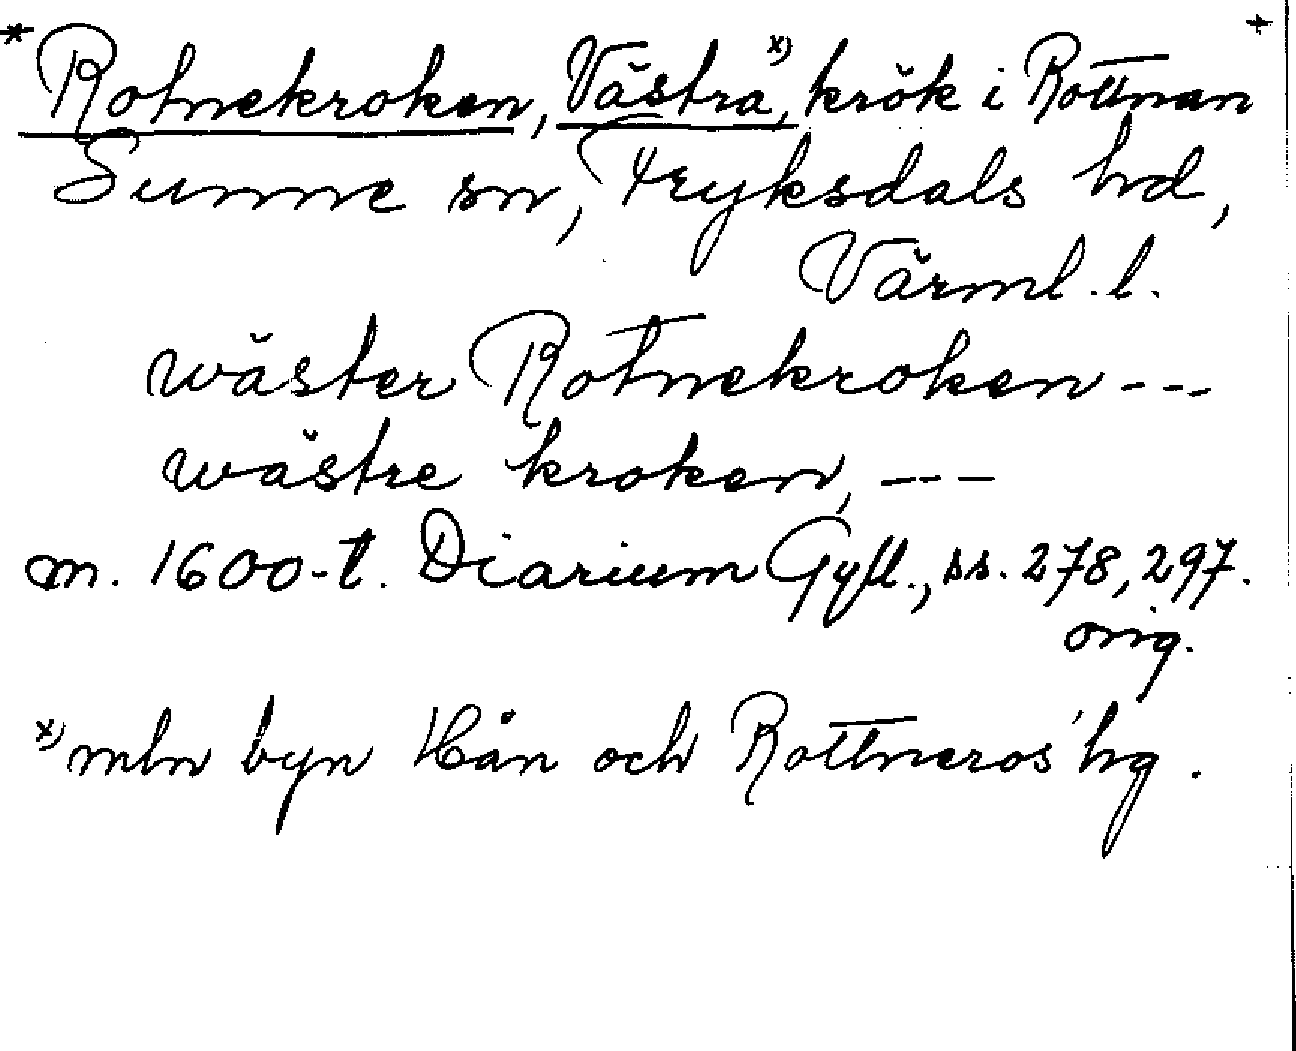 * Rotnekroken, Västra x), krök i Rottnan +
Sunne sn, Fryksdals hd,
Värml. l.
wäster Rotnekroken ---
wästre kroken, ---
m. 1600-t. Diarium Gyll., ss. 278, 297.
orig.
x) mln byn Hån och Rottneros' hg.